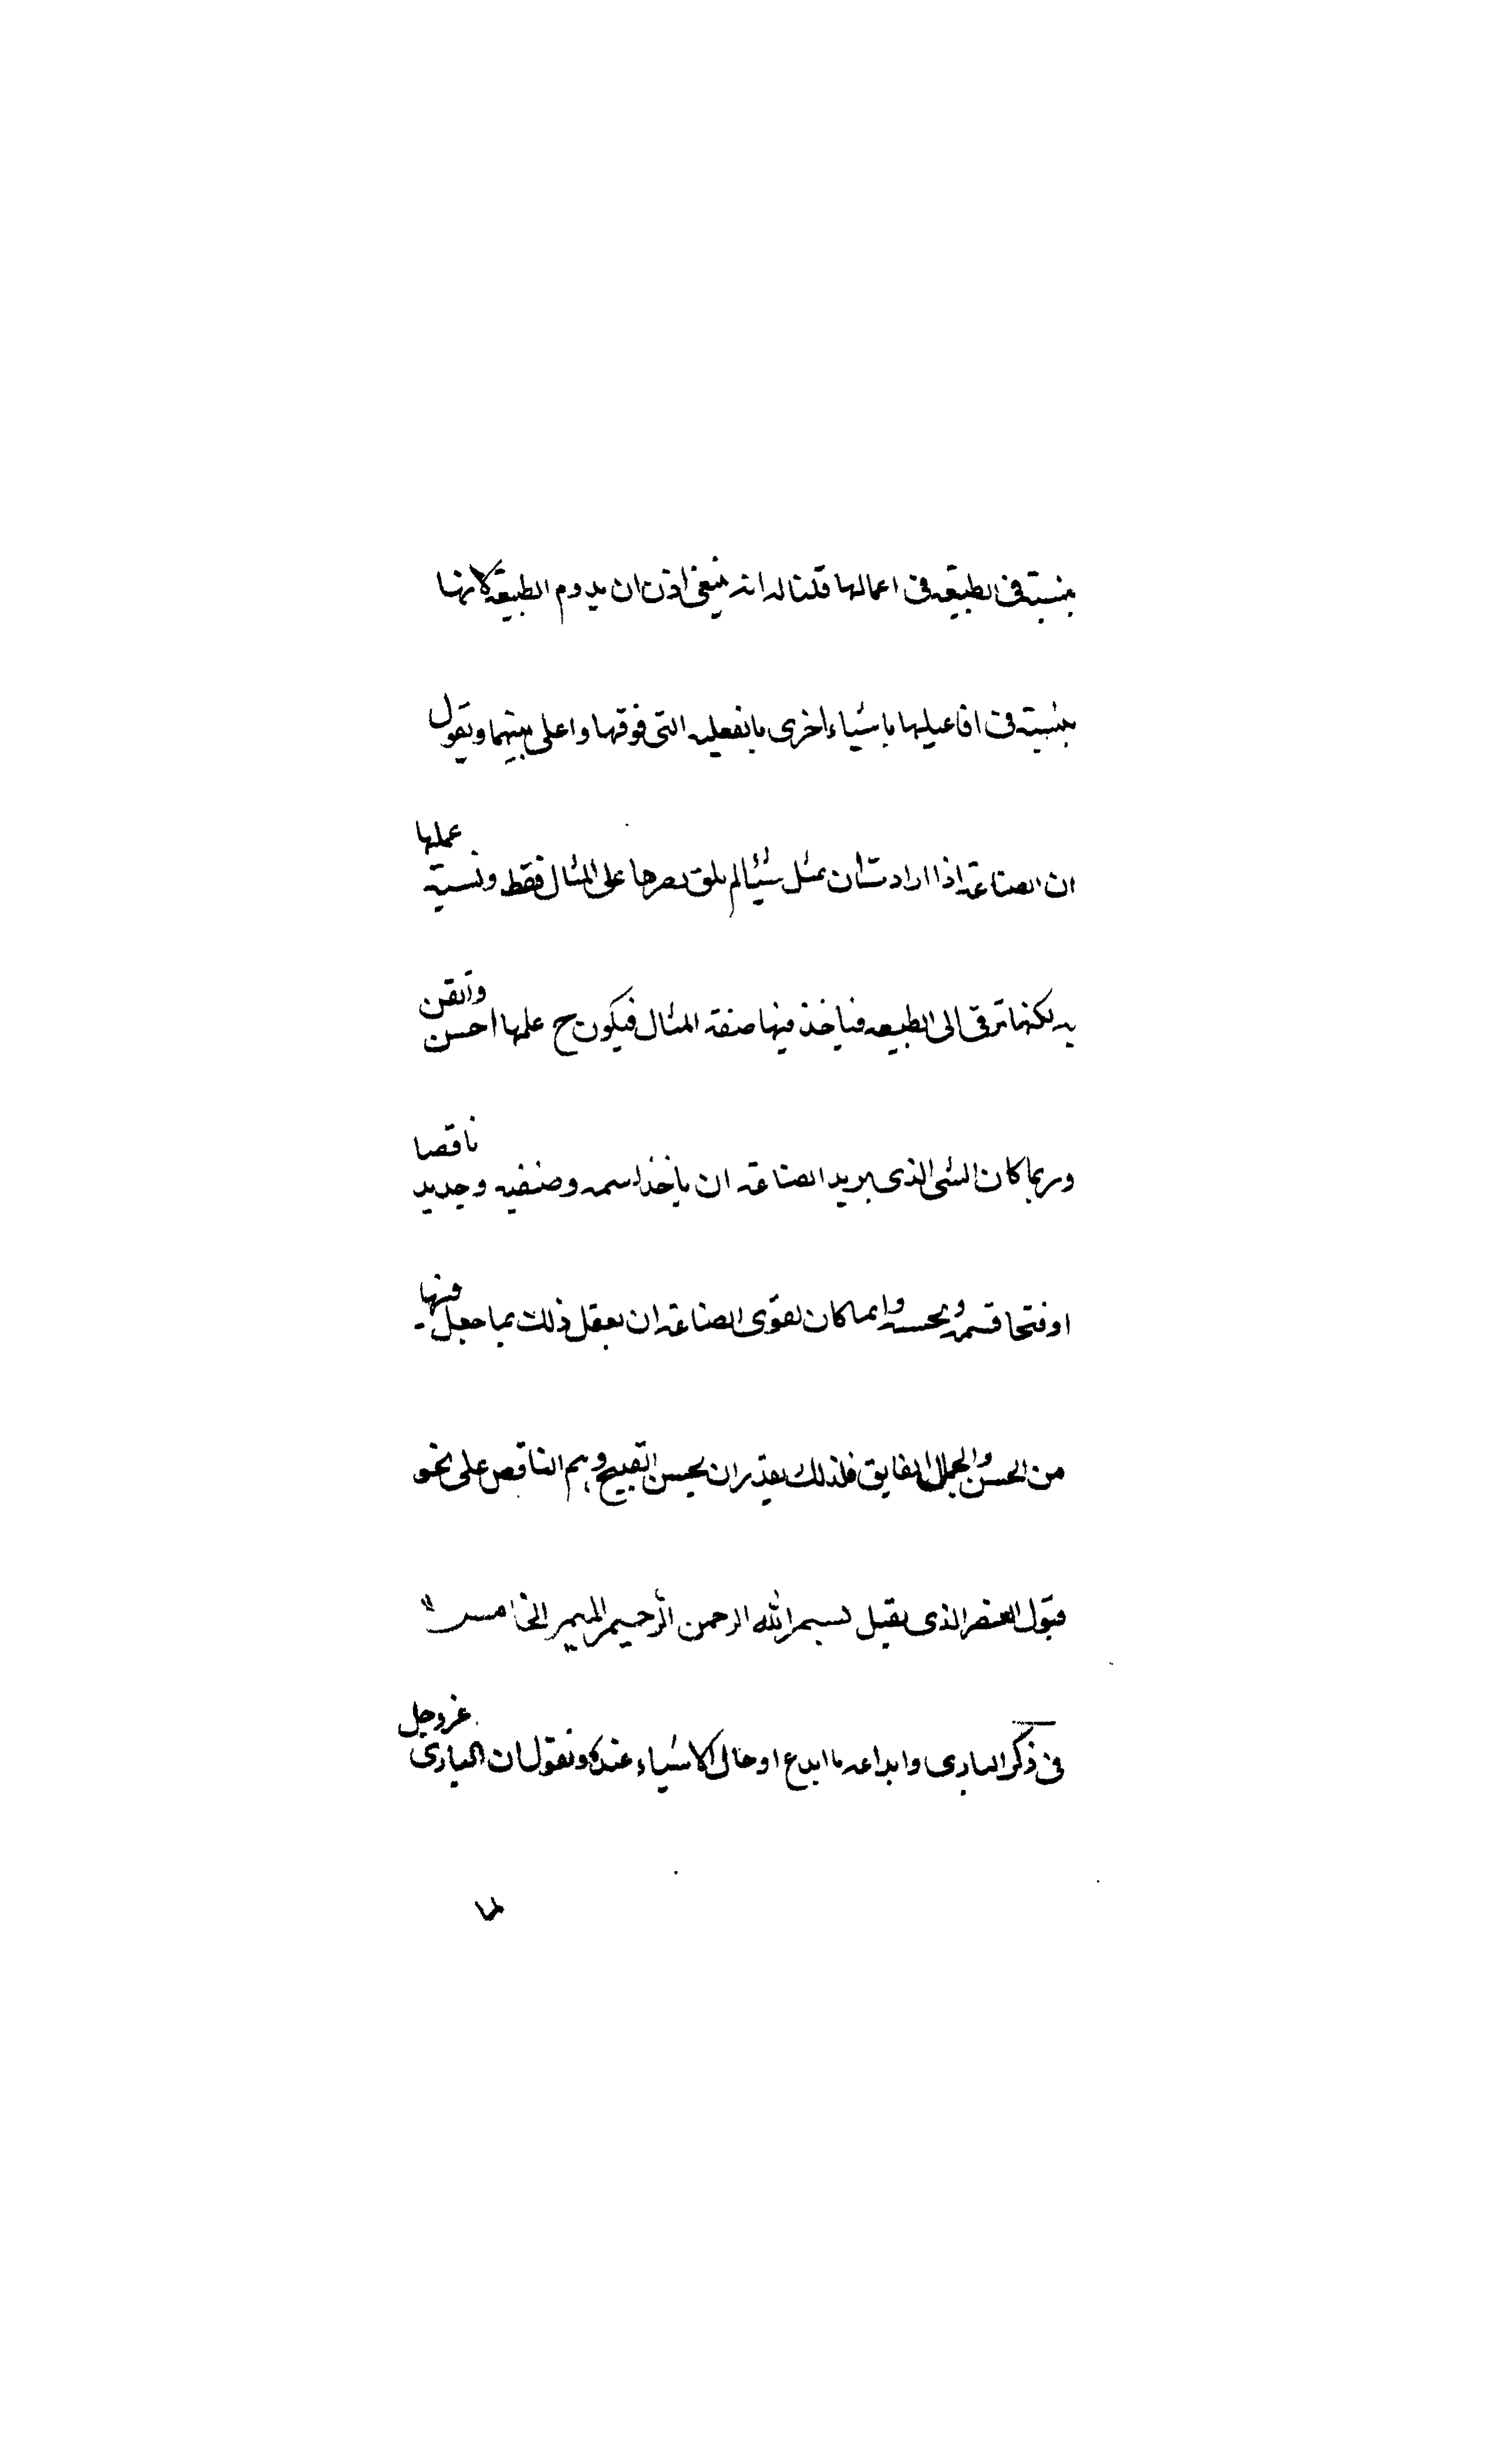 بنسبته فى الطبيعه فى اعمالها قلنا له انه ينبغى اذن ان يدوم الطبيعة لانها
بنسبته فى افاعيلها باشياء اخرى بانفعليه التى فوقها واعلى بينهما ويقول
ان الصناعة اذا ارادت ان تمثل شيئا لم يلق بصرها على المثال فقط ونسبته عملها
به لكنها ترقى الى الطبيعه فياخذ فيها صفة المثال فيكون ح علمها احسن واتقن
وربما كان الشى الذى يريد الصناعة ان ياخذ اسمه وصنفيه وجديد ناقصا
وانما كان لقوى الصناعة ان يعقل ذلك بما جعل فيها
من الحسن والجمال الفايق فلذلك يقدر ان يحسن القبيح ويتم الناقص على نحو
قبول العنصر الذى يقبل بسم الله الرحمن الرحيم الميمر الخامس
فى ذكر البارى وابداعه ما ابدع وحال الاشياء عنده ونقول ان البارى عزوجل
لما